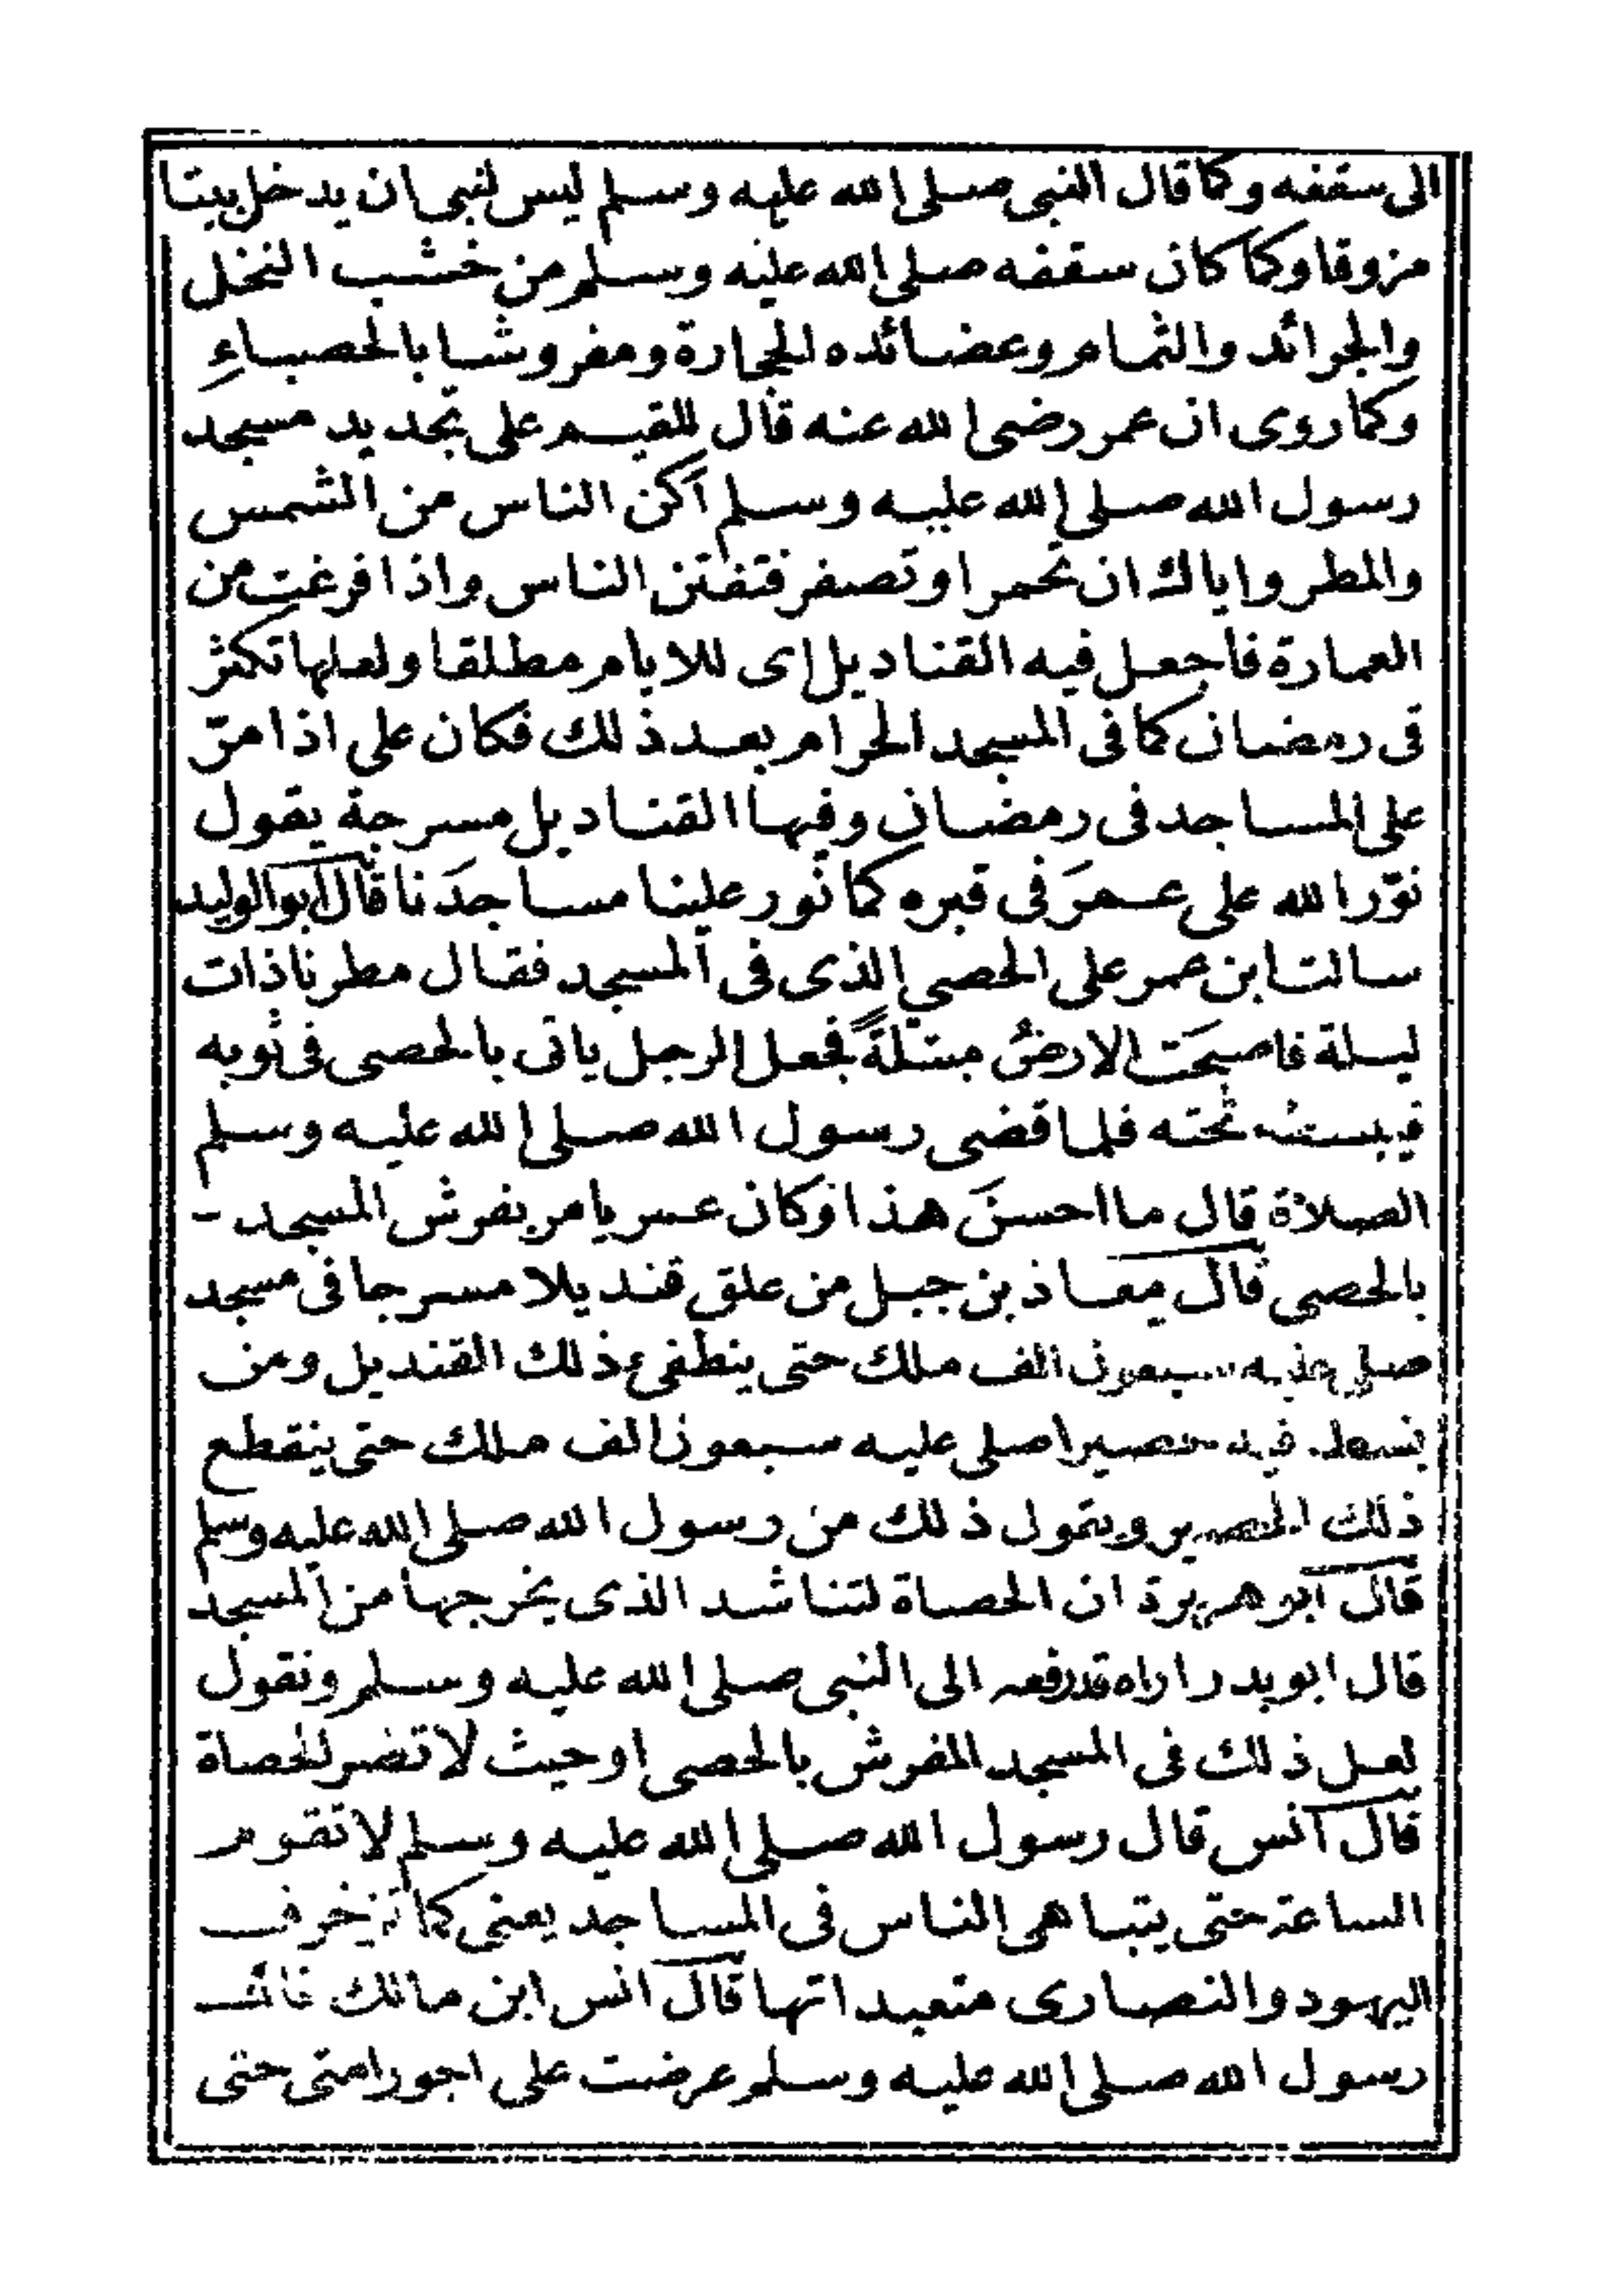 الى سقفه وكما قال النبى صلى الله عليه وسلم ليس لنبى ان يدخل بيتا
مزوقا وكما كان سقفه صلى الله عليه وسلم من خشب النخل
والجرائد والثمام وعضائده الحجارة ومفروشا بالحصباءِ
وكما روى ان عمر رضى الله عنه قال للقيم على تجديد مسجد
رسول الله صلى الله عليه وسلم أكن الناس من الشمس
والمطر واياك ان تحمر او تصفر فتفتن الناس واذا فرغت من
العمارة فاجعل فيه القناديل اى للايام مطلقا ولعلها تكثر
فى رمضان كما فى المسجد الحرام بعد ذلك فكان على اذا مرّ
على المساجد فى رمضان وفيها القناديل مسرجة يقول
نوّر الله على عمرَ فى قبره كما نور علينا مساجدَنا قال ابو الوليد
سالت ابن عمر على الحصى الذى فى المسجد فقال مطرنا ذات
ليلة فاصبحَت الارضُ مبتلةً فجعل الرجل ياتى بالحصى فى ثوبه
فيبسطه تحته فلما قضى رسول الله صلى الله عليه وسلم
الصلاة قال ما احسنَ هذا وكان عمر يامر بفرش المسجد -
بالحصى قال معاذ بن جبل من علق قنديلا مسرجا فى مسجد
صلى عليه سبعون الف ملك حتى ينطفئ ذلك القنديل ومن
بسط فيه حصيرا صلى عليه سبعون الف ملك حتى ينقطع
ذلك الحصير ويقول ذلك من رسول الله صلى الله عليه وسلم
قال ابو هريرة ان الحصاة لتناشد الذى يخرجها من المسجد
قال ابو بدر اراه قد رفعه الى النبى صلى الله عليه وسلم ونقول
لعل ذلك فى المسجد المفرش بالحصى او حيث لا تضر الحصاة
قال انس قال رسول الله صلى الله عليه وسلم لا تقوم
الساعة حتى يتباهى الناس فى المساجد يعنى كما تزخرف
اليهود والنصارى متعبداتها قال انس ابن مالك قال
رسول الله صلى الله عليه وسلم عرضت على اجور امتى حتى